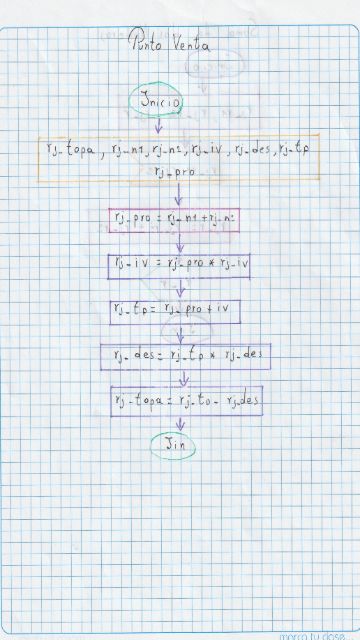 Punto Venta
Inicio
rj_topa, rj_n1, rj_n2, rj_iv, rj_des, rj_tp
rj_pro
rj_pro = rj_n1 + rj_n2
rj_iv = rj_pro * rj_iv
rj_tp = rj_pro + iv
rj_des = rj_tp * rj_des
rj_topa = rj_tp - rj_des
Fin